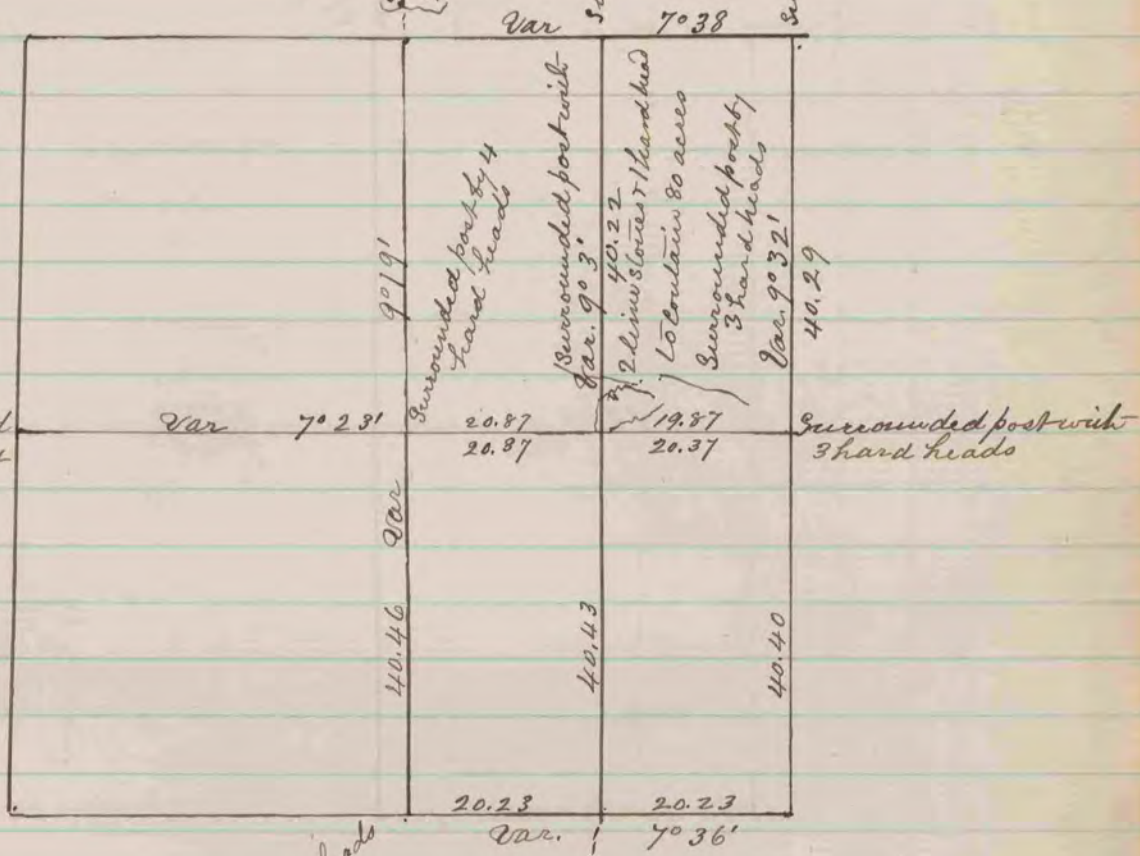 Var 7° 38
Surrounded post by 4
hard heads
Surrounded post with
Var. 9° 3'
40.22
2 lime stones & 1 hard head
to Contain 80 acres
Surrounded post by
3 hard heads
Var. 9° 32'
40.29
9° 19'
Var 7° 23'
20.87
19.87
Surrounded post with
3 hard heads
20.87
20.37
Var
40.46
40.43
40.40
20.23
20.23
Var. 7° 36'